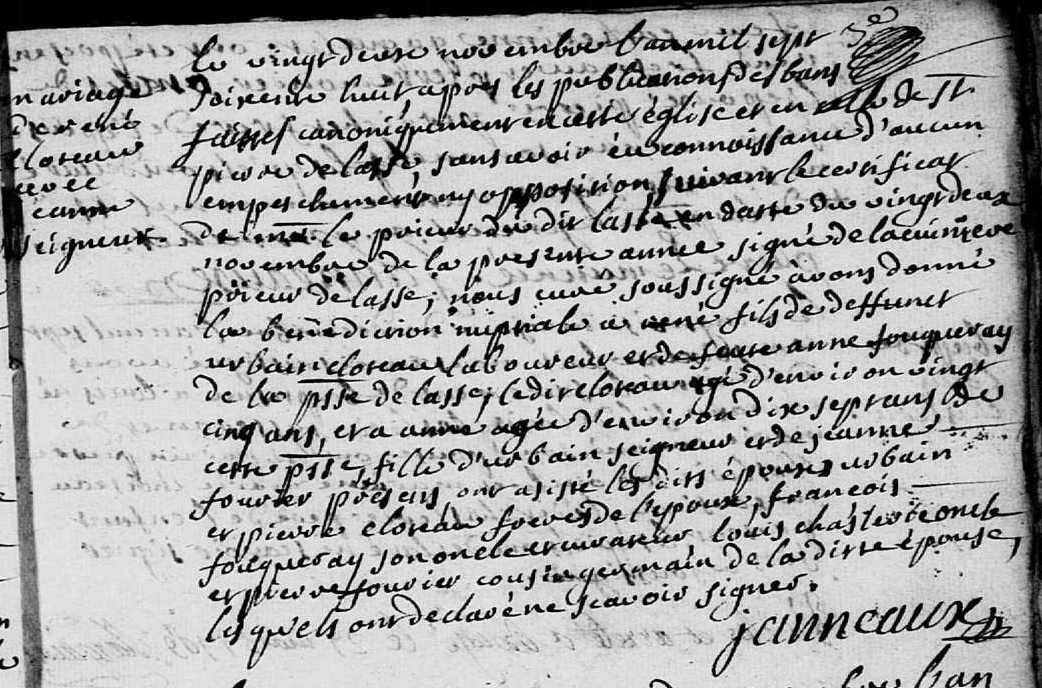 mariage
de rené
cloreau
avec
jeanne
seigneur
le vingt deux novembre l'an mil sept
soixente huit, apres les publications des bans
faittes canoniquement en cette église et en celle de St
pierre de lasse, sans avoir eü connoissance d'aucun
empeschement ny opposition suivant le certificat
de mr le prieur du dit lasse en datte du vingt deux
novembre de la presente année signé de
prieur de lasse, nous curé soussigné avons donné
la bénédiction nuptiale à rené fils de deffunct
urbain cloreau laboureur et de feue anne fouqueray
de la psse de lasse, le dit cloreau agé d'environ vingt
cinq ans, et a anne agée d'environ dix sept ans de
cette psse, fille d'urbain seigneur et de jeanne
fourier présens ont asisté les dits épouses urbain
et pierre cloreau freres de l'epoux, francois
fouqueray son oncle et curateur louis oncle
et pierre fourier cousin germain de la ditte épouse,
lesquels ont declaré ne scavoir signer.
janneaux